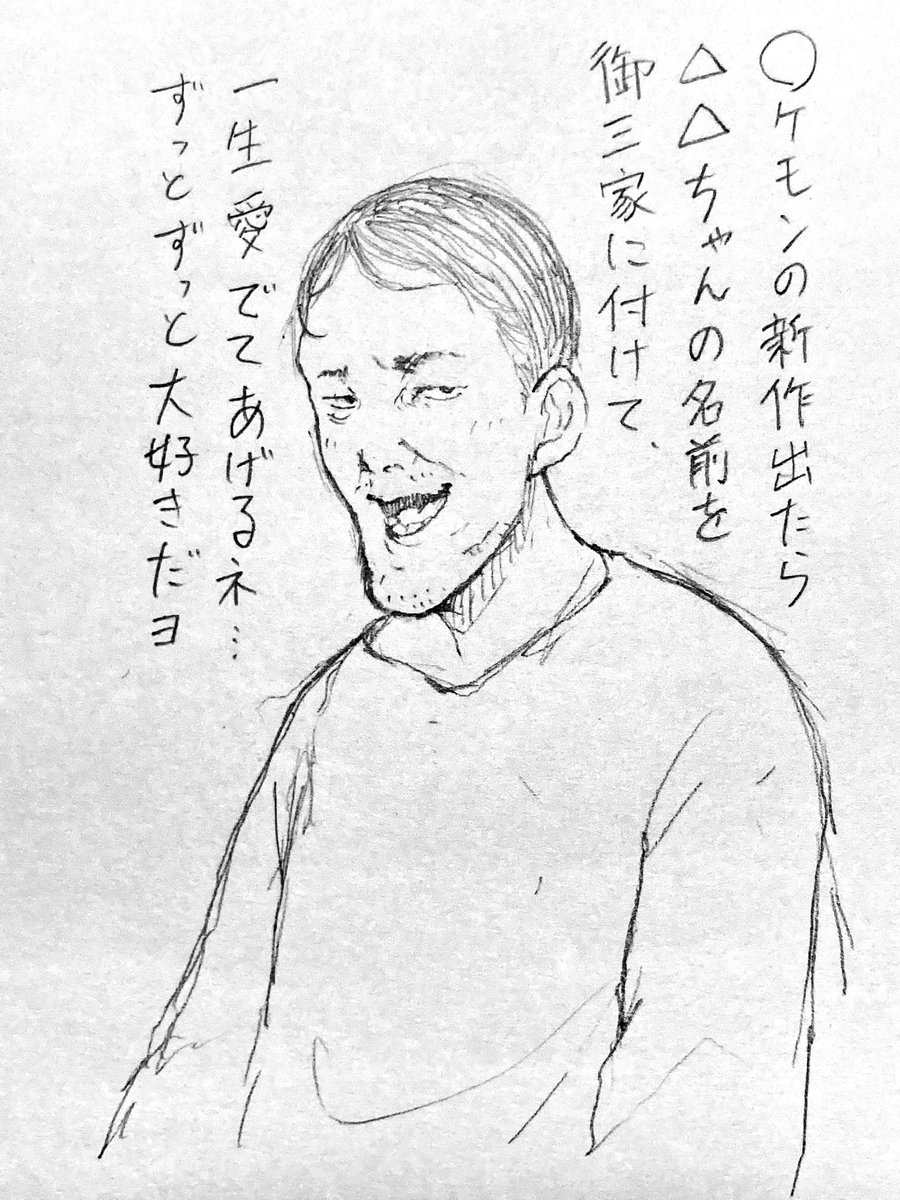 ○ケモンの新作出たら
△△ちゃんの名前を
御三家に付けて、
一生愛でてあげるネ…
ずっとずっと大好きだヨ